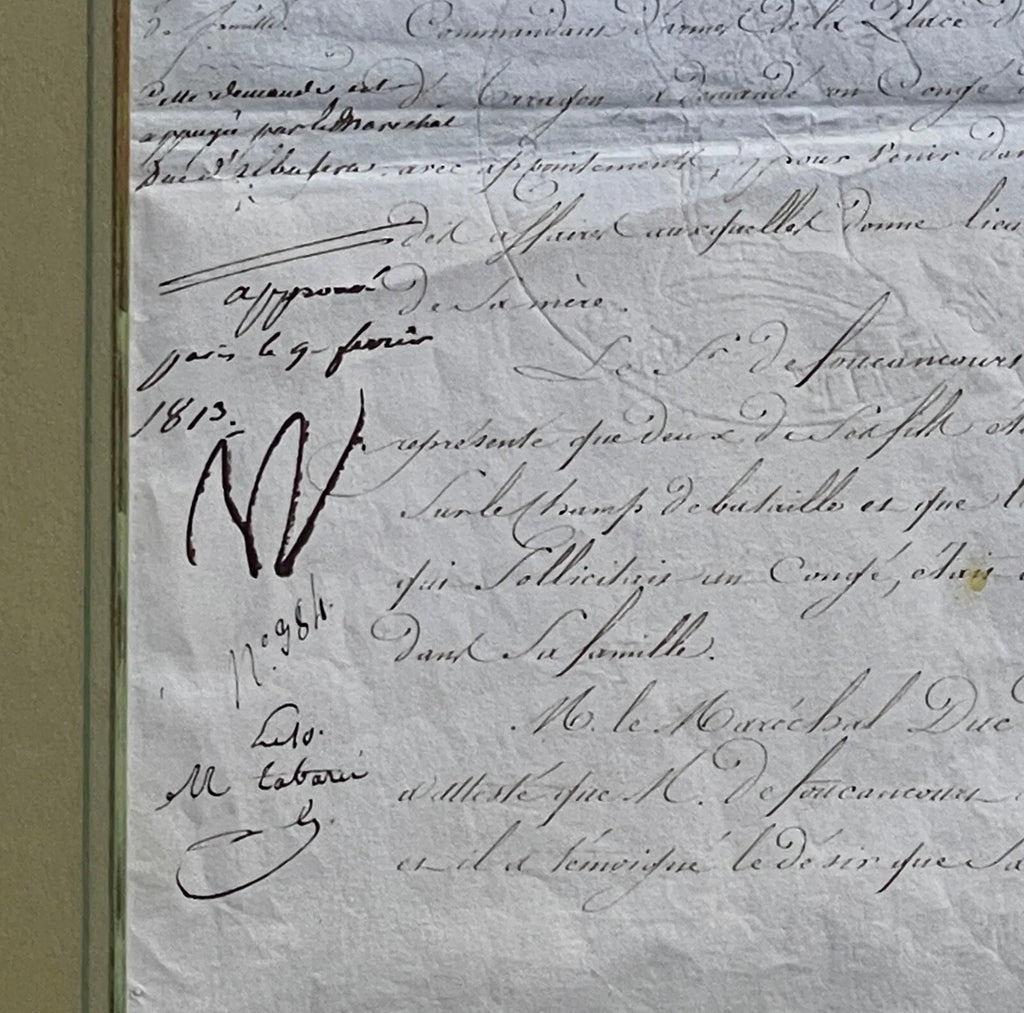 de famille.
Cette demande est
appuyée par le Maréchal
Duc d'Albufera
approuvé
paris le 9 fevrier
1813.
N
N.° 984.
Le 10.
M Tabarié
Commandant d'armes de la Place d
d' Arragon a demandé un Congé
avec appointements, pour venir dan
des affaires auxquelles donne lieu
de Sa mère.
Le S.r De foucancours
représenté que deux de Ses fils
Sur le Champ de bataille et que l
qui Sollicitait un Congé, était
dans Sa famille.
M. le Maréchal Duc
a attesté que M. De foucancours
et il a témoigné le désir que Sa